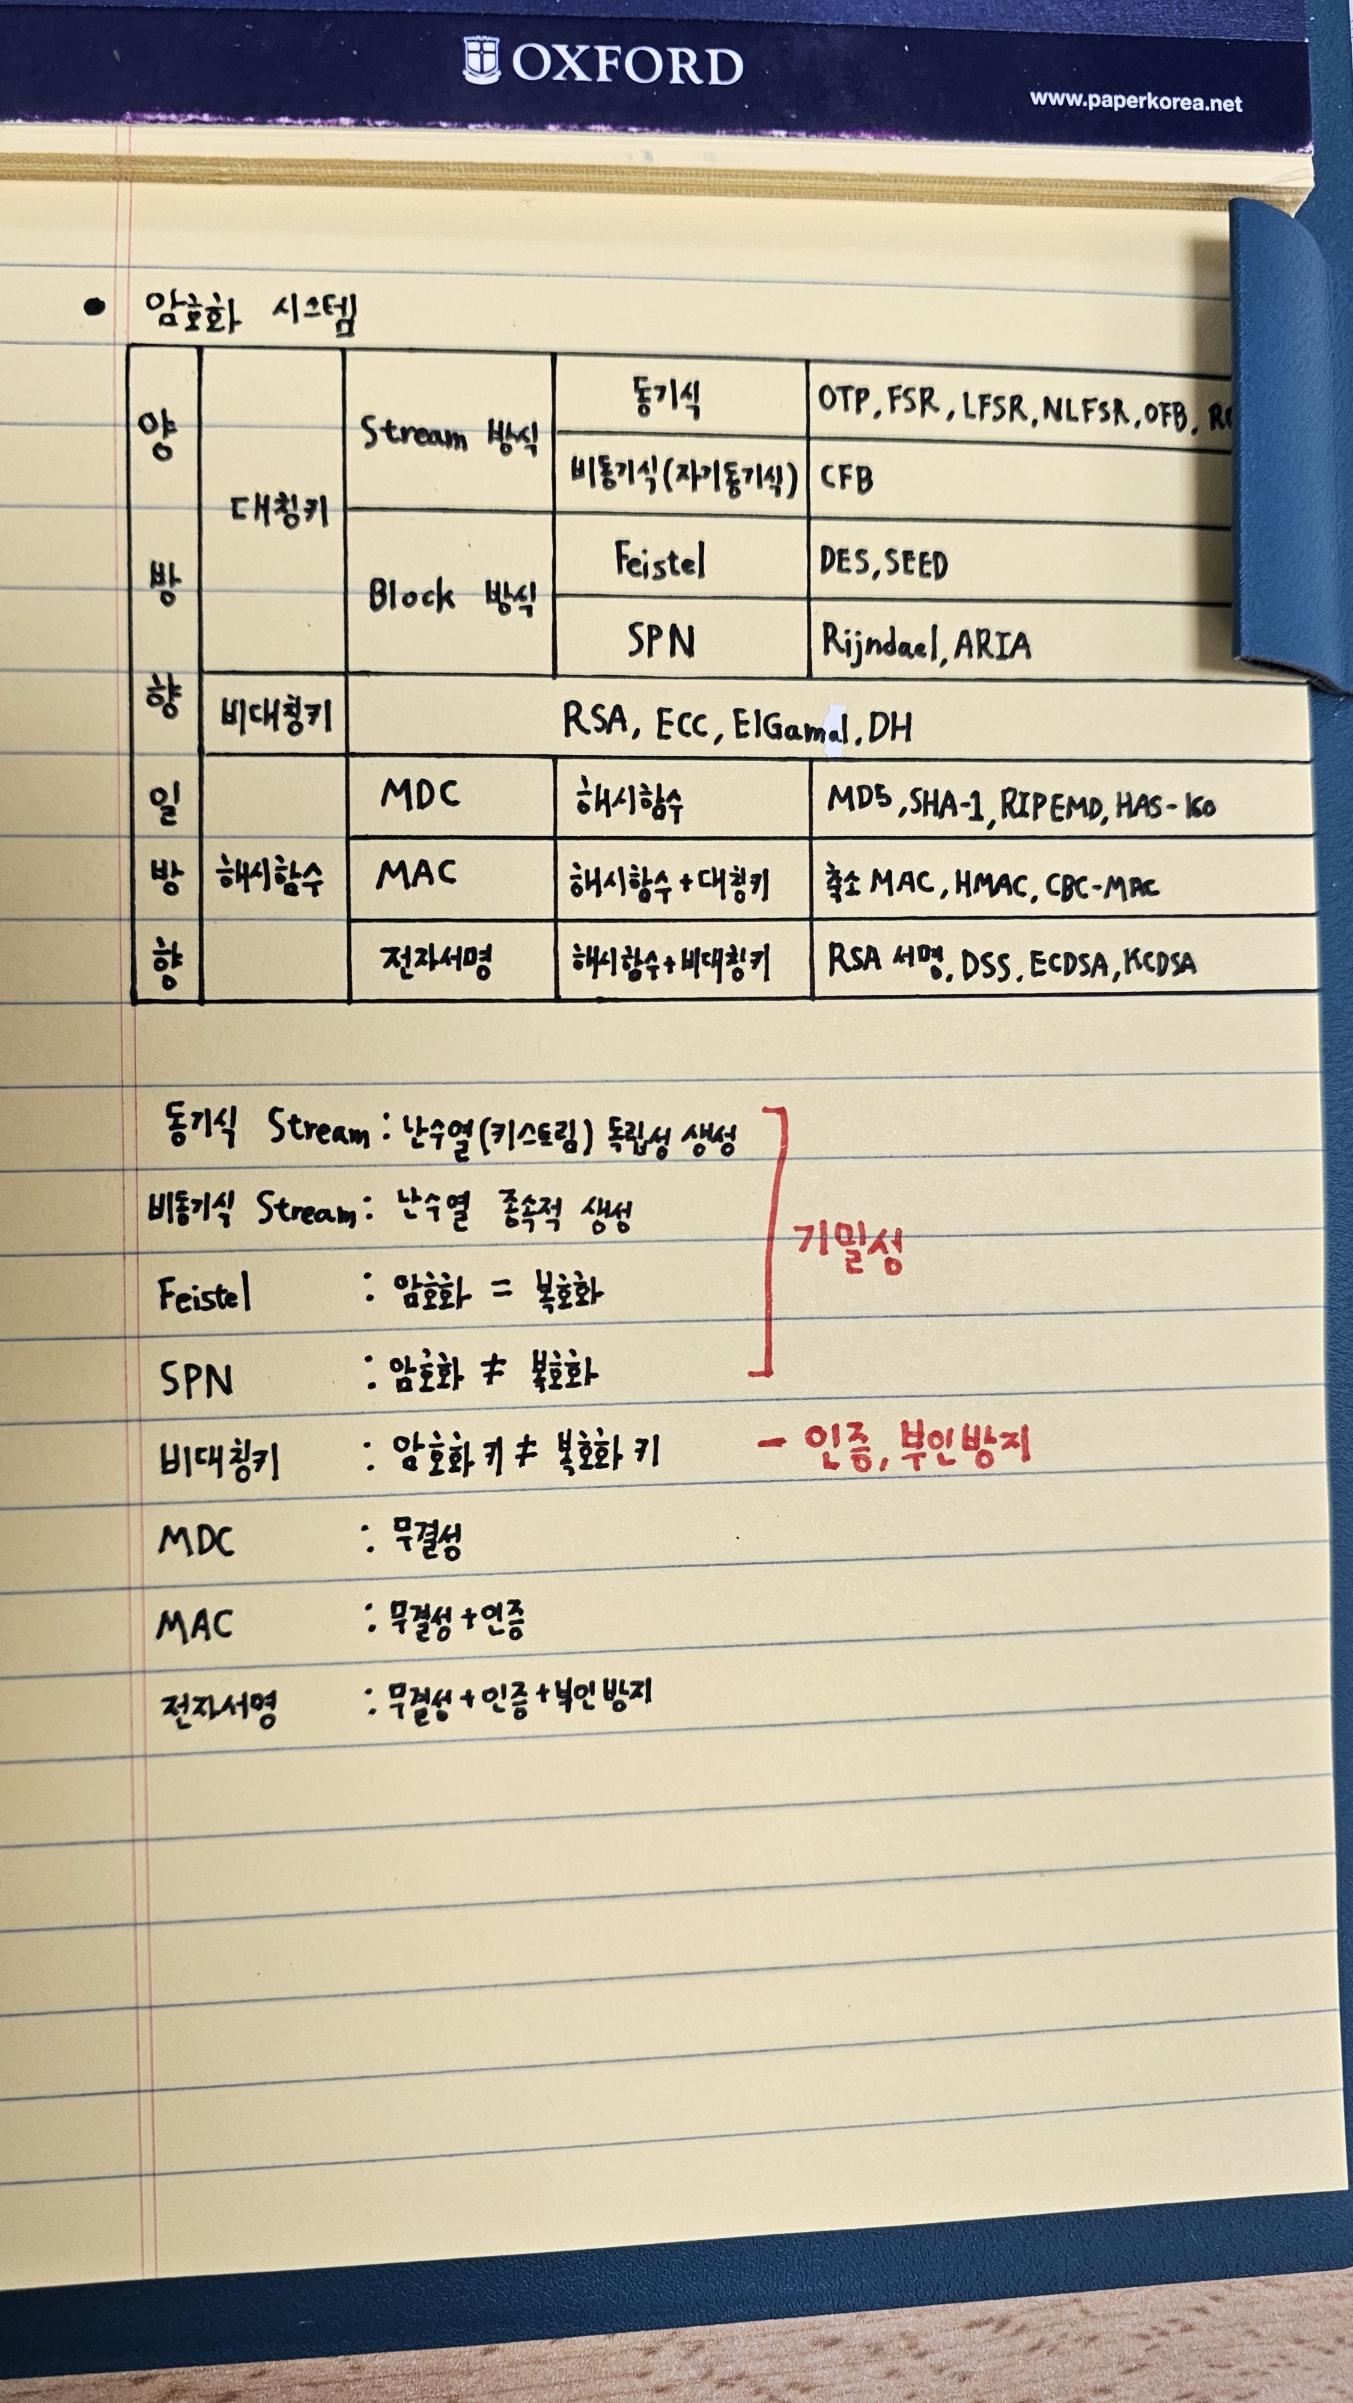 OXFORD
www.paperkorea.net
● 암호화 시스템
양방향 대칭키 Stream 방식 동기식 OTP, FSR, LFSR, NLFSR, OFB,
비동기식(자기동기식) CFB
Block 방식 Feistel DES, SEED
SPN Rijndael, ARIA
비대칭키 RSA, ECC, ElGamal, DH
일방향 해시함수 MDC 해시함수 MD5, SHA-1, RIPEMD, HAS-160
MAC 해시함수+대칭키 축소 MAC, HMAC, CBC-MAC
전자서명 해시함수+비대칭키 RSA 서명, DSS, ECDSA, KCDSA
동기식 Stream : 난수열(키스트림) 독립성 생성
비동기식 Stream : 난수열 종속적 생성
기밀성
Feistel : 암호화 = 복호화
SPN : 암호화 ≠ 복호화
비대칭키 : 암호화 키 ≠ 복호화 키 - 인증, 부인방지
MDC : 무결성
MAC : 무결성+인증
전자서명 : 무결성+인증+부인방지